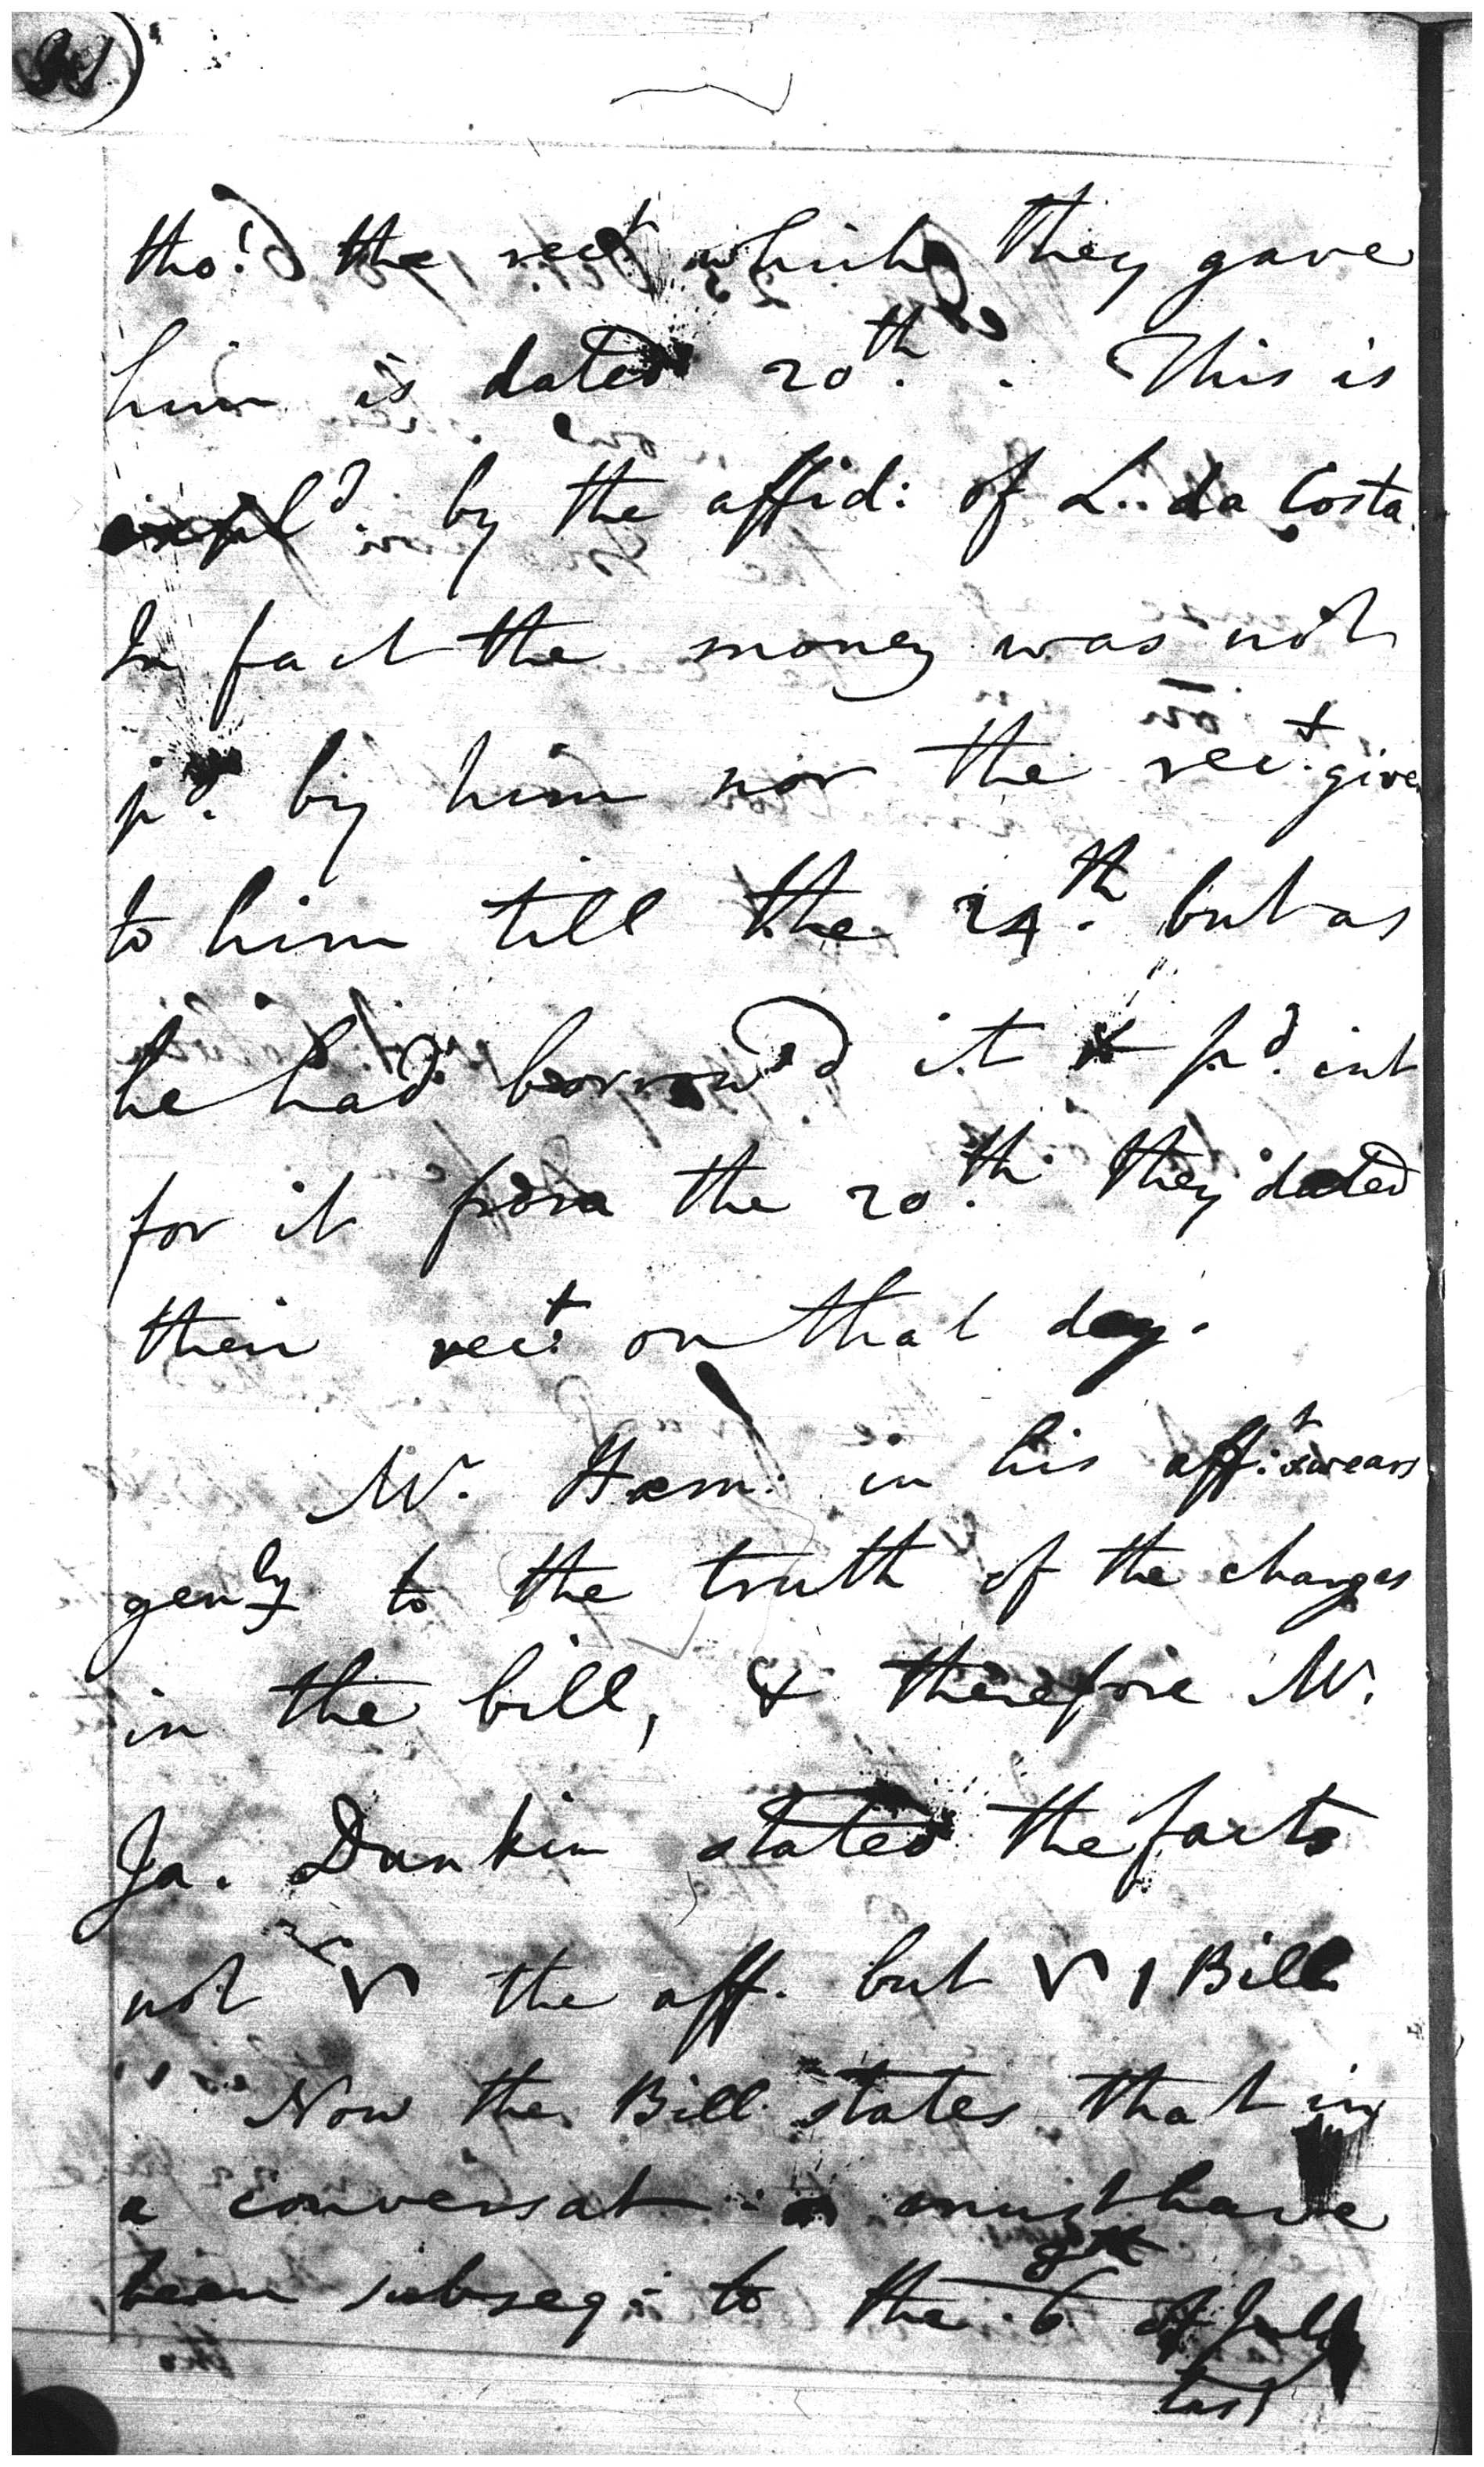 tho' the rec.t which they gave
him is dated 20.th. This is
expl.d by the affid: of L. da Costa.
In fact the money was not
p.d by him nor the rec.t given
to him till the 24.th but as
he had borrow'd it & p.d int
for it from the 20.th they dated
their rec.t on that day.
Mr. Ham: in his aff:t swears
gen.ly to the truth of the charges
in the bill, & therefore Mr.
Ja. Dunkin stated the facts
not the aff. but Bill
Now the Bill states that in
a conversat must have
been subseq: to the 6th of July
last